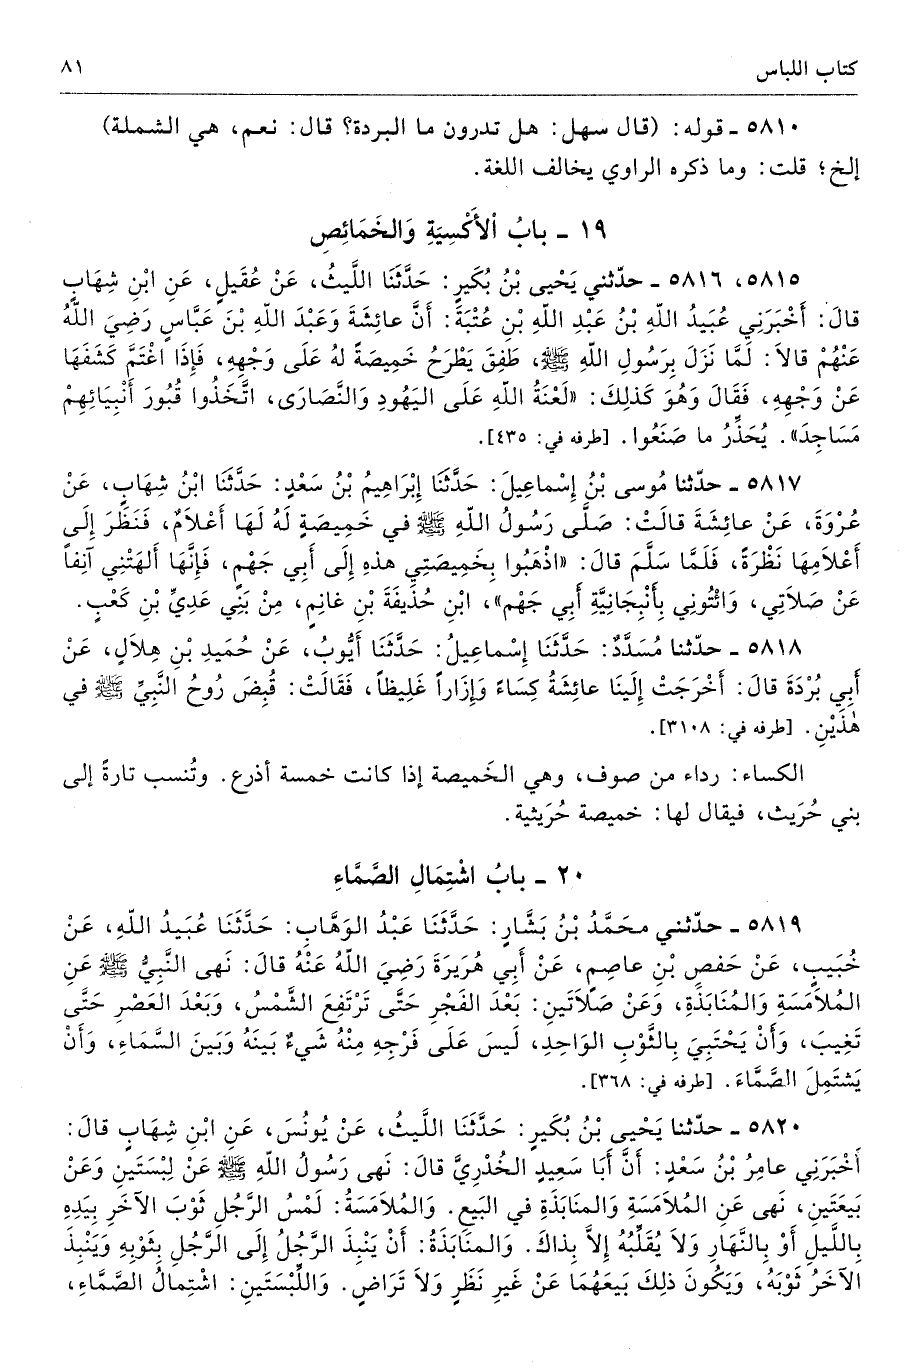 كتاب اللباس ٨١
٥٨١٠ ـ قوله: (قال سهل: هل تدرون ما البردة؟ قال: نعم، هي الشملة)
إلخ؛ قلت: وما ذكره الراوي يخالف اللغة.
١٩ ـ بابُ الأَكْسِيَةِ وَالخَمَائِصِ
٥٨١٥، ٥٨١٦ ـ حدّثني يَحْيى بْنُ بُكَيرٍ: حَدَّثَنَا اللَّيثُ، عَنْ عُقَيلٍ، عَنِ ابْنِ شِهَابٍ
قالَ: أَخْبَرَنِي عُبَيدُ اللّهِ بْنُ عَبْدِ اللّهِ بْنِ عُتْبَةَ: أَنَّ عائِشَةَ وَعَبْدَ اللّهِ بْنَ عَبَّاسٍ رَضِيَ اللّهُ
عَنْهُمْ قالاَ: لَمَّا نَزَلَ بِرَسُولِ اللّهِ ﷺ، طَفِقَ يَطْرَحُ خَمِيصَةً لهُ عَلَى وَجْهِهِ، فَإِذَا اغْتَمَّ كَشَفَهَا
عَنْ وَجْهِهِ، فَقَالَ وَهُوَ كَذلِكَ: «لَعْنَةُ اللّهِ عَلَى اليَهُودِ وَالنَّصَارَى، اتَّخَذُوا قُبُورَ أَنْبِيَائِهِمْ
مَسَاجِدَ». يُحَذِّرُ ما صَنَعُوا. [طرفه في: ٤٣٥].
٥٨١٧ ـ حدّثنا مُوسى بْنُ إِسْماعِيلَ: حَدَّثَنَا إِبْرَاهِيمُ بْنُ سَعْدٍ: حَدَّثَنَا ابْنُ شِهَابٍ، عَنْ
عُرْوَةَ، عَنْ عائِشَةَ قالَتْ: صَلَّى رَسُولُ اللّهِ ﷺ في خَمِيصَةٍ لَهُ لَهَا أَعْلاَمٌ، فَنَظَرَ إِلَى
أَعْلاَمِهَا نَظْرَةً، فَلَمَّا سَلَّمَ قالَ: «اذْهَبُوا بِخَمِيصَتِي هذهِ إِلَى أَبِي جَهْمٍ، فَإِنَّهَا أَلهَتْنِي آنِفاً
عَنْ صَلاَتِي، وَائْتُونِي بِأَنْبِجَانِيَّةِ أَبِي جَهْمِ»، ابْنِ حُذَيفَةَ بْنِ غانِمٍ، مِنْ بَنِي عَدِيِّ بْنِ كَعْبٍ.
٥٨١٨ ـ حدّثنا مُسَدَّدٌ: حَدَّثَنَا إِسْماعِيلُ: حَدَّثَنَا أَيُّوبُ، عَنْ حُمَيدِ بْنِ هِلاَلٍ، عَنْ
أَبِي بُرْدَةَ قالَ: أَخْرَجَتْ إِلَينَا عائِشَةُ كِسَاءً وَإِزَاراً غَلِيظاً، فَقَالَتْ: قُبِضَ رُوحُ النَّبِيِّ ﷺ في
هٰذَيْنِ. [طرفه في: ٣١٠٨].
الكساء: رداء من صوف، وهي الخَميصة إذا كانت خمسة أذرع. وتُنسب تارةً إلى
بني حُرَيث، فيقال لها: خميصة حُرَيثية.
٢٠ ـ بابُ اشْتِمَالِ الصَّمَّاءِ
٥٨١٩ ـ حدّثني محَمَّدُ بْنُ بَشَّارٍ: حَدَّثَنَا عَبْدُ الوَهَّابِ: حَدَّثَنَا عُبَيدُ اللّهِ، عَنْ
خُبَيبٍ، عَنْ حَفصِ بْنِ عاصِمٍ، عَنْ أَبِي هُرَيرَةَ رَضِيَ اللّهُ عَنْهُ قالَ: نَهى النَّبِيُّ ﷺ عَنِ
المُلاَمَسَةِ وَالمُنَابَذَةِ، وَعَنْ صَلاَتَينِ: بَعْدَ الفَجْرِ حَتَّى تَرْتَفِعَ الشَّمْسُ، وَبَعْدَ العَصْرِ حَتَّى
تَغِيبَ، وَأَنْ يَحْتَبِيَ بِالثَّوْبِ الوَاحِدِ، لَيسَ عَلَى فَرْجِهِ مِنْهُ شَيءٌ بَينَهُ وَبَينَ السَّمَاءِ، وَأَنْ
يَشْتَمِلَ الصَّمَّاءَ. [طرفه في: ٣٦٨].
٥٨٢٠ ـ حدّثنا يَحْيى بْنُ بُكَيرٍ: حَدَّثَنَا اللَّيثُ، عَنْ يُونُسَ، عَنِ ابْنِ شِهَابٍ قالَ:
أَخْبَرَنِي عامِرُ بْنُ سَعْدٍ: أَنَّ أَبَا سَعِيدٍ الخُدْرِيَّ قالَ: نَهى رَسُولُ اللّهِ ﷺ عَنْ لِبْسَتَينِ وَعَنْ
بَيعَتَينِ، نَهى عَنِ المُلاَمَسَةِ وَالمنَابَذَةِ في البَيعِ. وَالمُلاَمَسَةُ: لَمْسُ الرَّجُلِ ثَوْبَ الآخَرِ بِيَدِهِ
بِاللَّيلِ أَوْ بِالنَّهَارِ وَلاَ يُقَلِّبُهُ إِلاَّ بِذاكَ. وَالمنَابَذَةُ: أَنْ يَنْبِذَ الرَّجُلُ إِلَى الرَّجُلِ بِثَوْبِهِ وَيَنْبِذَ
الآخَرُ ثَوْبَهُ، وَيَكُونَ ذلِكَ بَيعَهُمَا عَنْ غَيرِ نَظَرٍ وَلاَ تَرَاضٍ. وَاللِّبْسَتَينِ: اشْتِمالُ الصَّمَّاءِ،